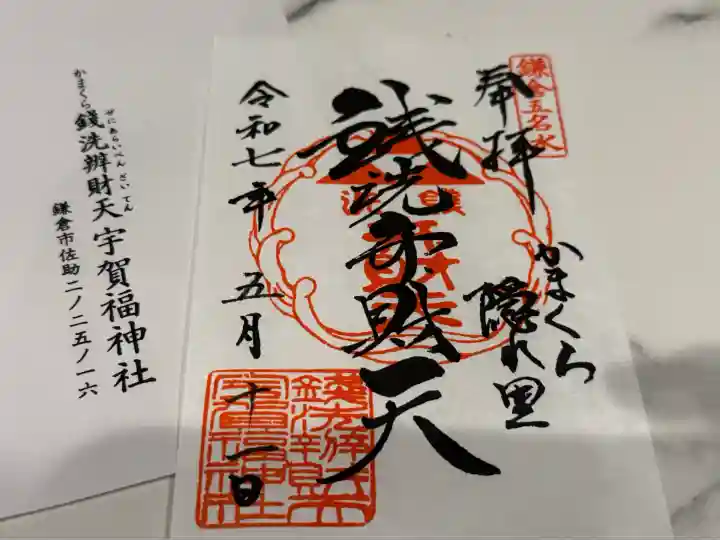 鎌倉五名水
奉拝
かまくら
隠れ里
銭洗弁財天
令和七年
五月
十一日
かまくら
ぜにあらいべんざいてん
銭洗辨財天
宇賀福神社
鎌倉市佐助二ノ二五ノ一六